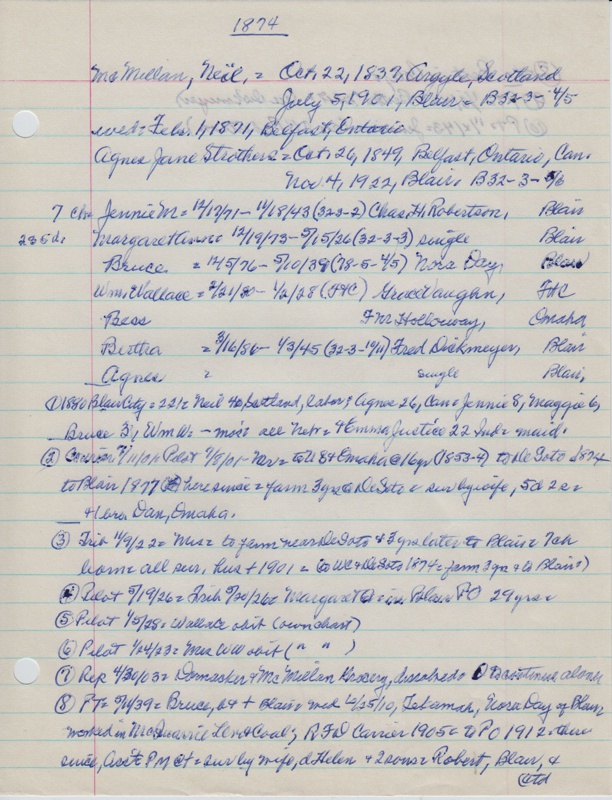 1874
McMillan, Neil, = Oct. 22, 1837, Argyle, Scotland
July 5, 1901, Blair = B32-3-4/5
wed = Feb. 1, 1871, Belfast, Ontario
Agnes Jane Strothers = Oct. 26, 1849, Belfast, Ontario, Can.
Nov. 4, 1922, Blair. B32-3-5/6
7 ch = Jennie M = 12/17/71 - 11/18/43 (32-3-2) Chas. H. Robertson, Blair
2 s 5 d. Margaret Ann = 12/19/73 - 5/15/26 (32-3-3) single Blair
Bruce = 12/5/76 - 5/10/39 (78-5-4/5) Nora Day, Blair
Wm. Wallace = 2/21/80 - 1/2/28 (FtC) Grace Vaughn, FtC
Bess F.M. Holloway, Omaha
Bertha = 3/16/86 - 1/3/45 (32-3-10/11) Fred Dickmeyer, Blair
Agnes = single Blair,
① 1880 Blair City = 221 = Neil 42 Scotland, labor; Agnes 26, Can = Jennie 8, Maggie 6,
Bruce 3; Wm W. - mo's all Neb = + Emma Justice 22 Ind = maid.
② Pilot 7/ /01 = to US & Omaha @ 16 yr (1853-4) to DeSoto 1874
to Blair 1877 here since = farm 3 yrs @ DeSoto = sur by wife, 5d 2s =
+ 1 bro Dan, Omaha.
③ Trib 11/9/22 = Mrs = to farm near DeSoto & 3 yrs later to Blair = 7 ch
born = all sur, hus + 1901 = (to WC & DeSoto 1874 = farm 3 yr & to Blair)
④ Pilot 5/19/26 = Trib 5/20/26 = Margaret = in Blair PO 29 yrs =
⑤ Pilot 1/5/28 = Wallace obit (own chart)
⑥ Pilot 1/24/23 = Mrs WW obit (" ")
⑦ Rep 4/30/03 = & McMillan Grocery, dissolved = D to continue alone
⑧ PT = 5/11/39 = Bruce, 62 + Blair = wed 12/25/10, Tekamah, Nora Day of Blair
worked in McQuarrie Lbr & Coal; RFD Carrier 1905 = to PO 1912 & there
since, Ass't PM at = sur by wife, d Helen + 2 sons = Robert, Blair, &
Ctd